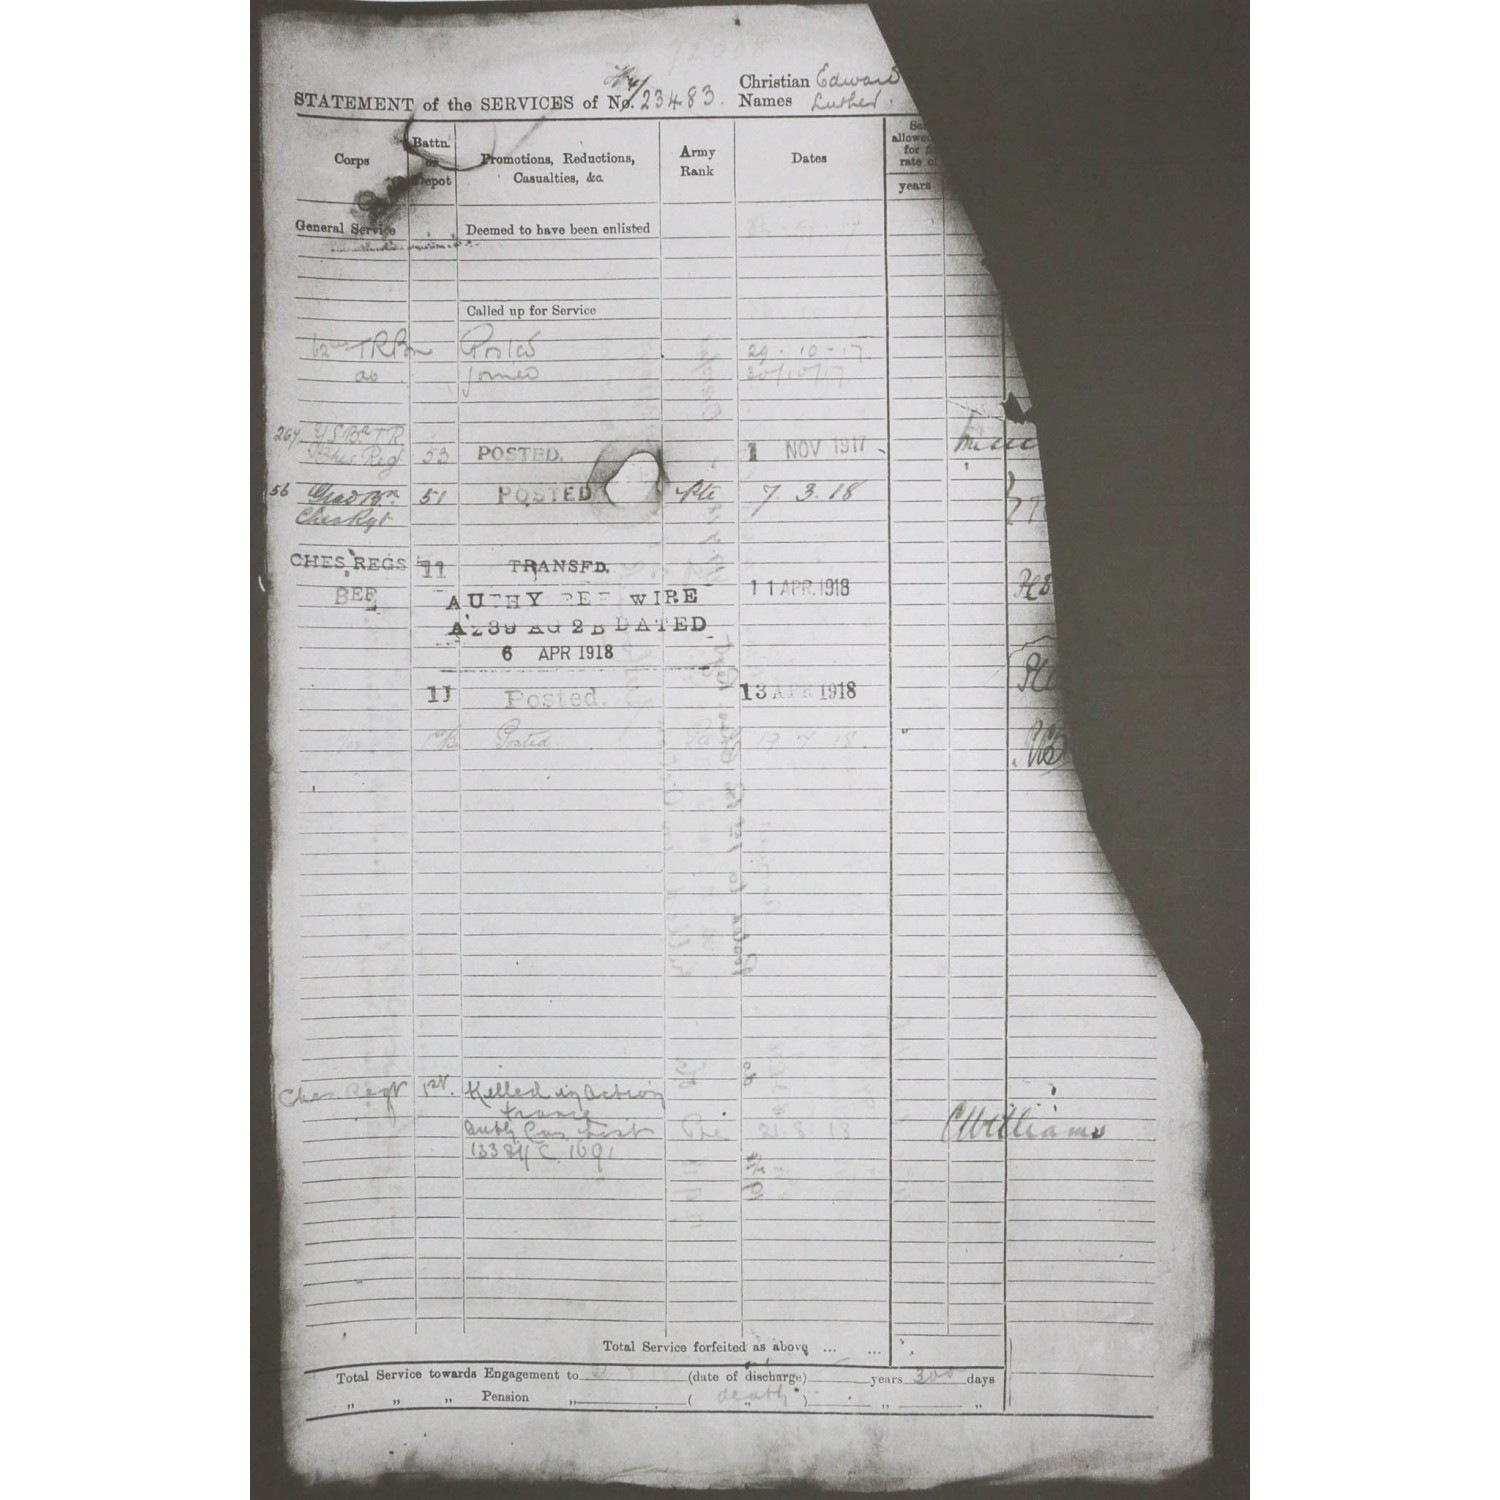 Christian Edward
STATEMENT of the SERVICES of No. 23483. Names Luther.
Corps
Battn. or Depot
Promotions, Reductions, Casualties, &c.
Army Rank
Dates
allowed
for
rate of
years
General Service Deemed to have been enlisted
Called up for Service
TRBn Posted 29-10-17.
do joined 30/10/17
Ches Reg 53 POSTED. 1 NOV 1917
56 Grad Bn 51 POSTED Pte 7.3.18
Ches Rgt
CHES REGS 11 TRANSFD.
BEF AUTHY PER WIRE 11 APR. 1918
AZ39 AG 2B DATED
6 APR 1918
11 Posted. 13 APR 1918
Posted 19 7 18.
Ches Regt 1st. Killed in Action
France
Authy Cas List Pte 21.8.18 CWilliams
Total Service forfeited as above ... ...
Total Service towards Engagement to (date of discharge) years 300 days
„ „ „ Pension „ ( death ) „ „